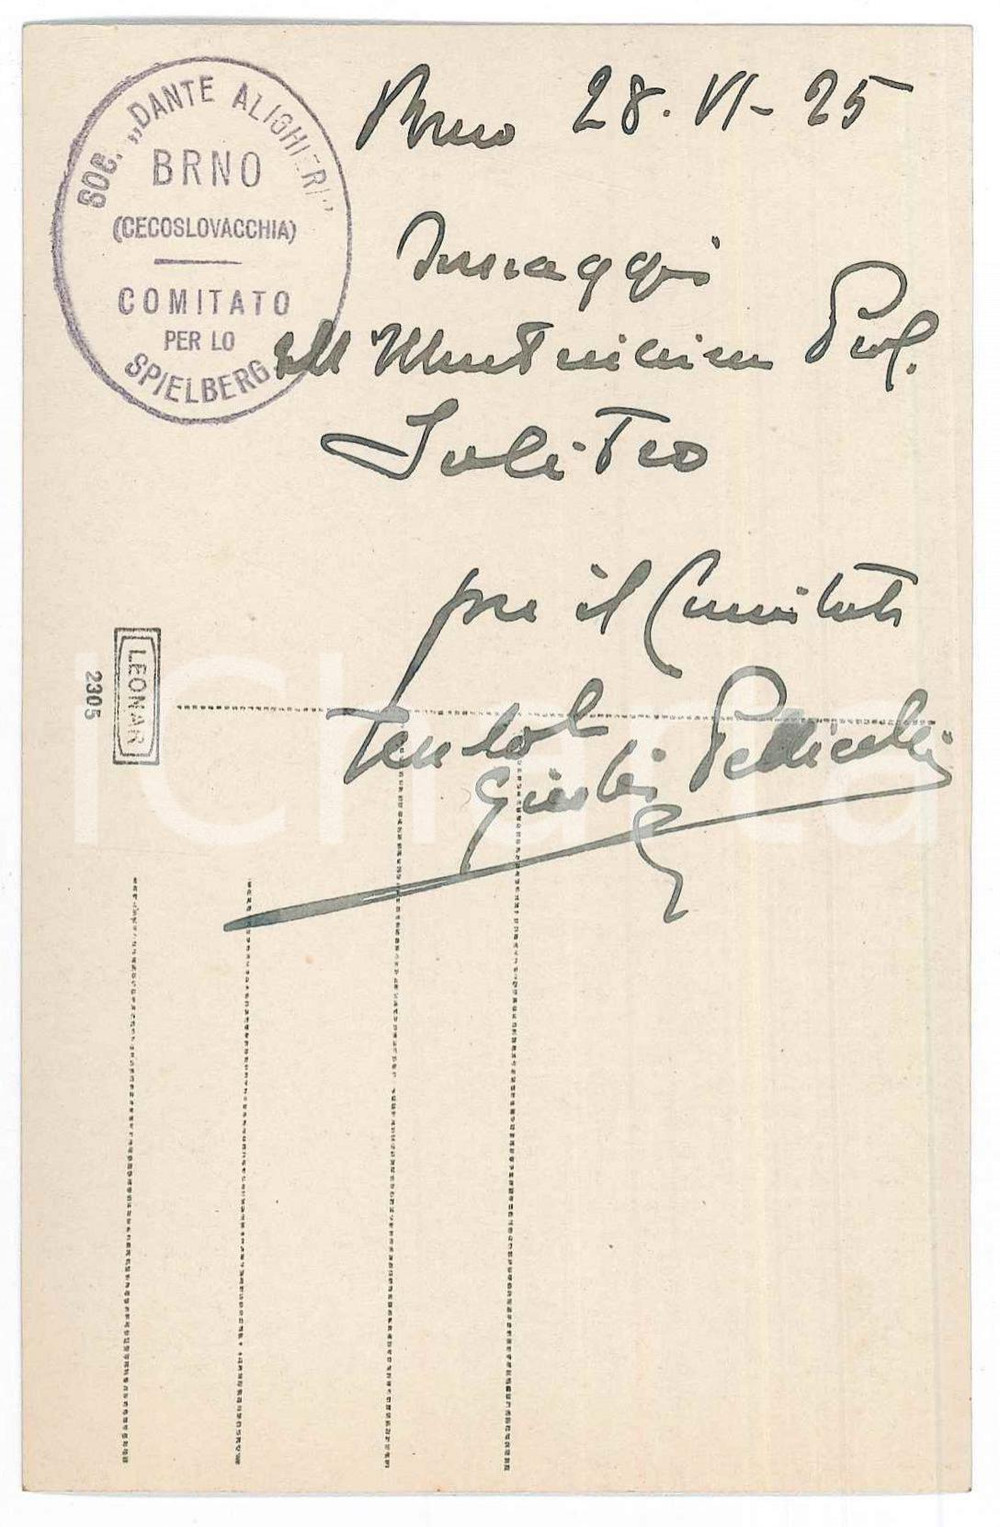 SOC. „DANTE ALIGHIERI”
BRNO
(CECOSLOVACCHIA)
COMITATO
PER LO
SPIELBERG
Brno 28.VI-25
Omaggi
all' Illustrissimo Prof.
Solitro
per il Comitato
LEONAR
2305
IChata